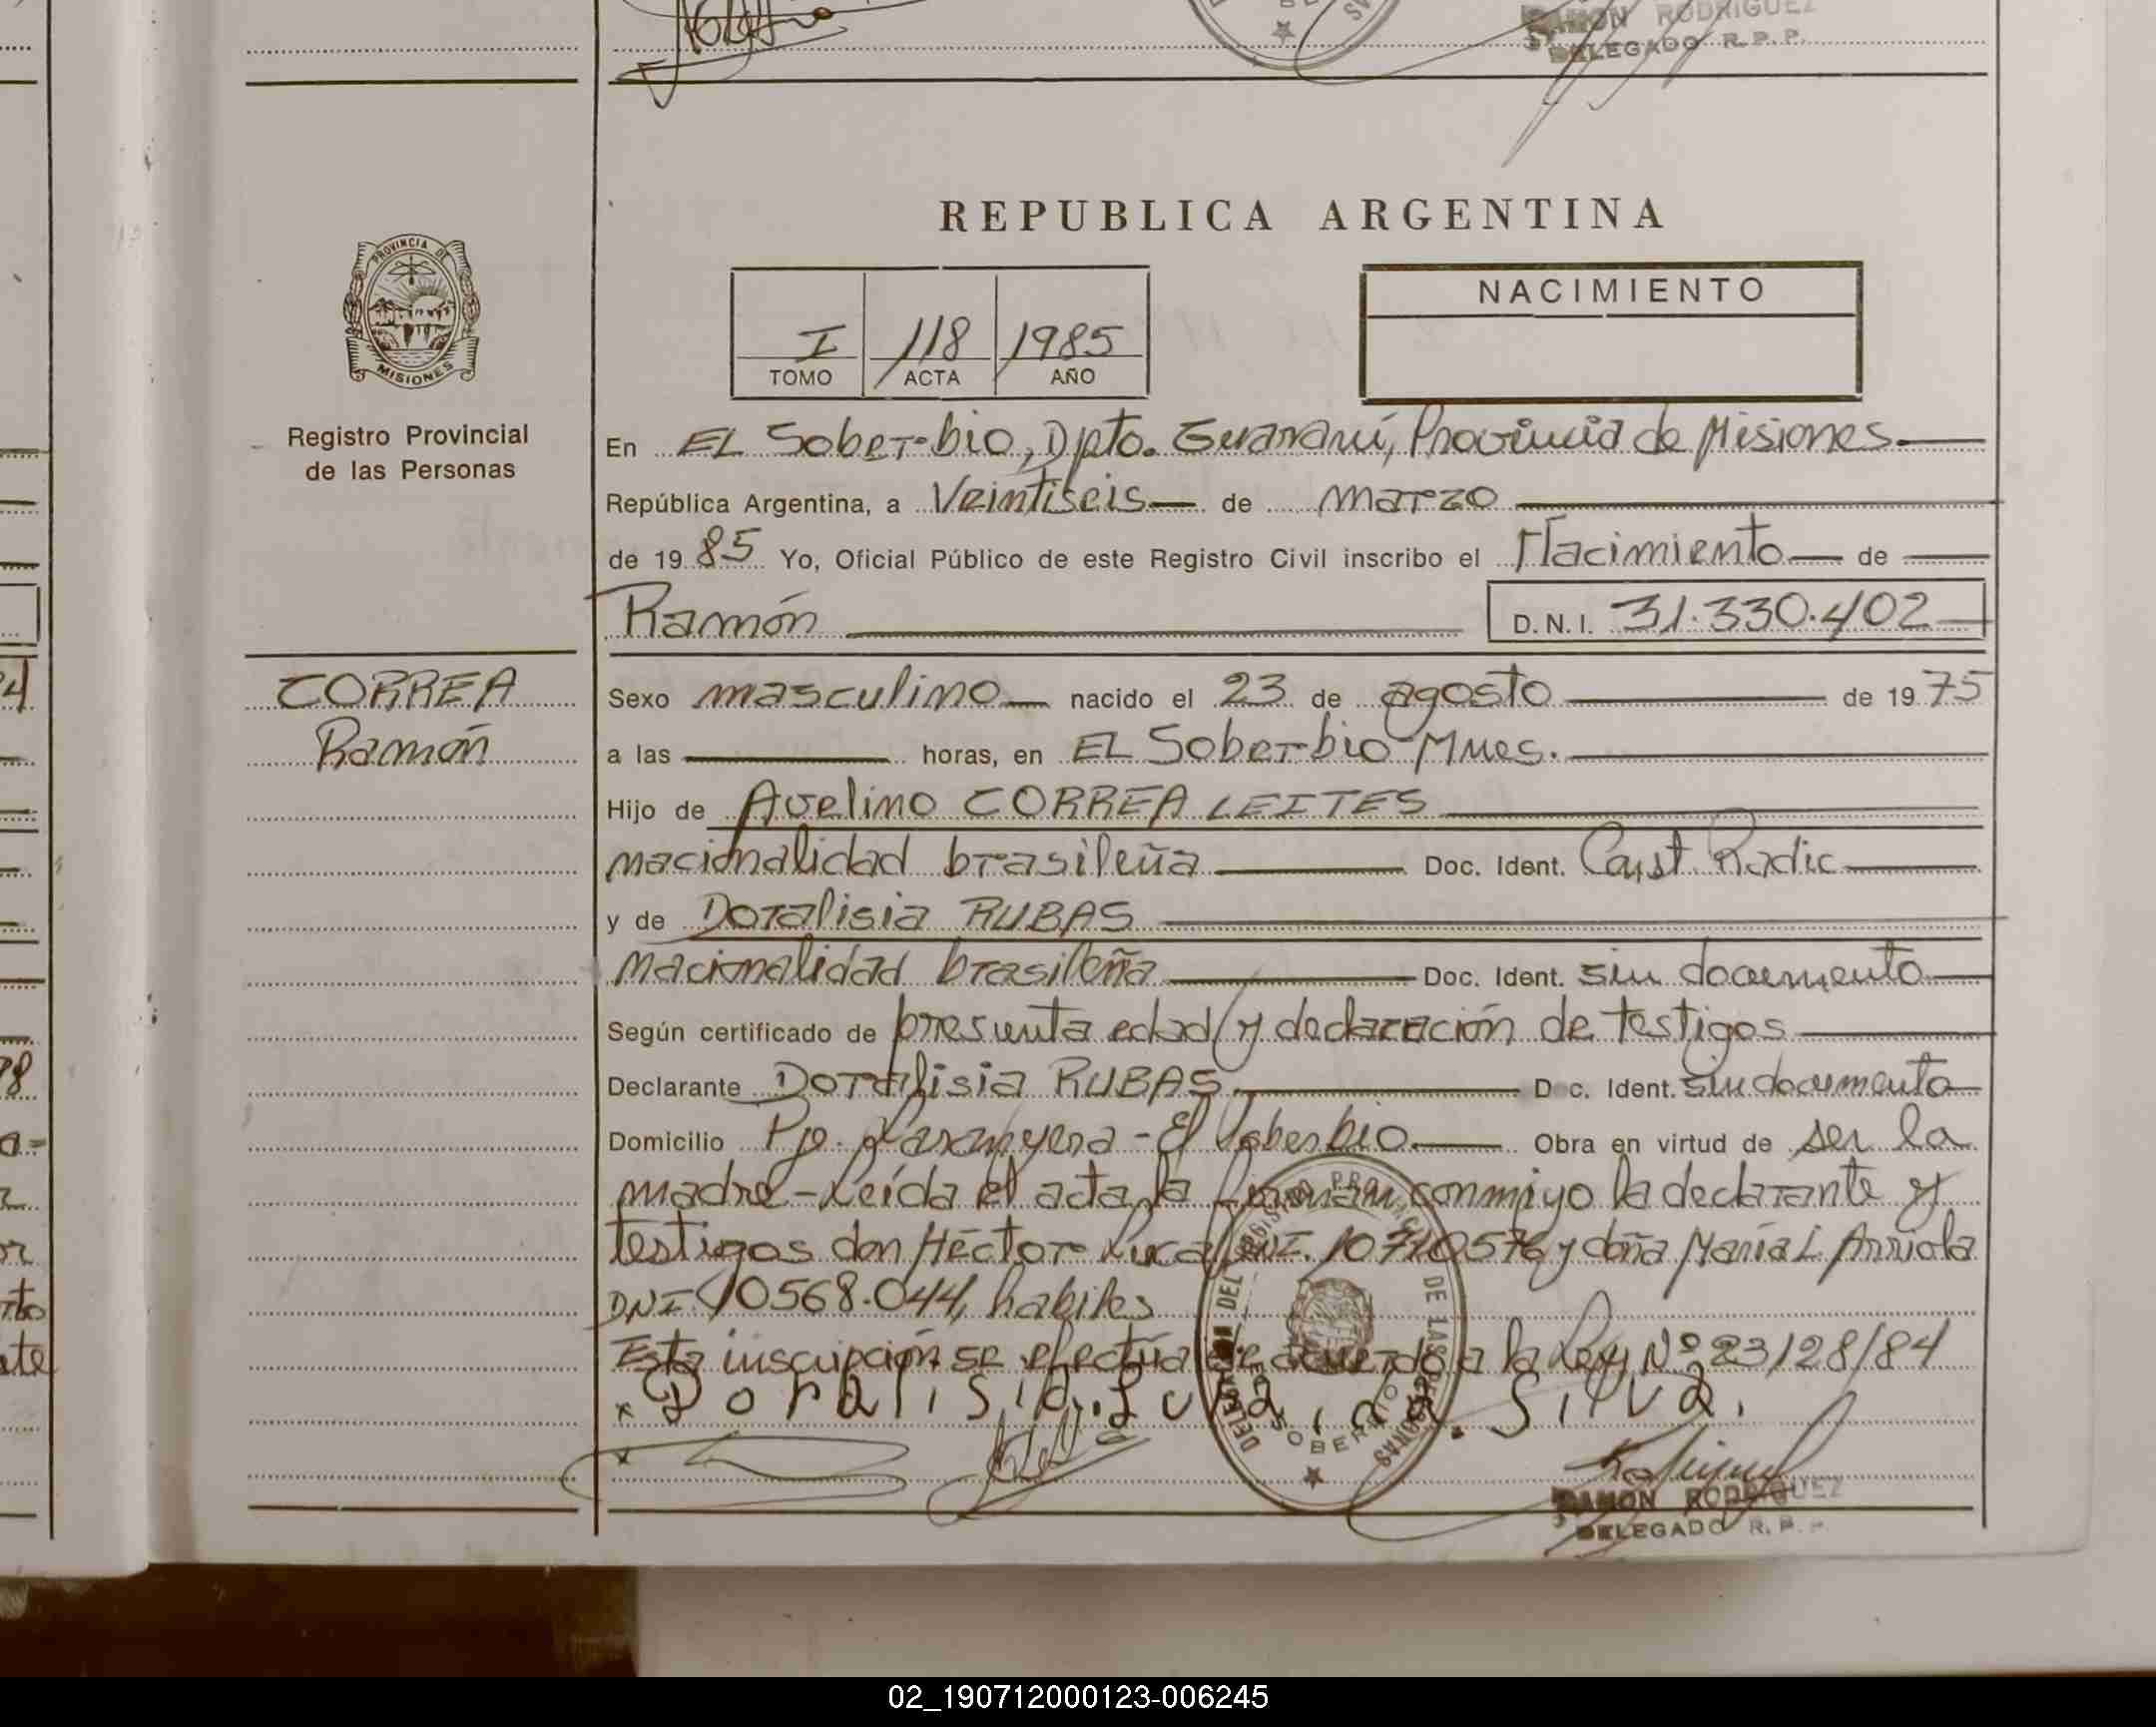 RAMON RODRIGUEZ
DELEGADO R.P.P.
REPUBLICA ARGENTINA
PROVINCIA DE
MISIONES
Registro Provincial
de las Personas
I 118 1985
TOMO ACTA AÑO
NACIMIENTO
En EL Soberbio, Dpto. Guaraní, Provincia de Misiones.
República Argentina, a Veintiseis de marzo
de 1985 Yo, Oficial Público de este Registro Civil inscribo el Nacimiento de
Ramón D.N.I. 31.330.402
CORREA
Ramón
Sexo masculino nacido el 23 de agosto de 1975
a las horas, en EL Soberbio-Mnes.
Hijo de Avelino CORREA LEITES
nacionalidad brasileña Doc. Ident. Const. Radic
y de Doralisia RUBAS
nacionalidad brasileña Doc. Ident. sin documento
Según certificado de presunta edad y declaración de testigos
Declarante Doralisia RUBAS. Doc. Ident. sin documento
Domicilio Pje. - El Soberbio. Obra en virtud de ser la
madre - Leída el acta, la firman conmigo la declarante y
testigos don Héctor DNI. 10710576 y doña María L Arriola
DNI 10568.044, habiles
Esta inscripción se efectúa de acuerdo a la Ley Nº 23128/84
x Doralisia. da. Silva.
x
REGISTRO PROVINCIAL DE LAS PERSONAS
SOBERBIO
RAMON RODRIGUEZ
DELEGADO R.P.P.
02_190712000123-006245